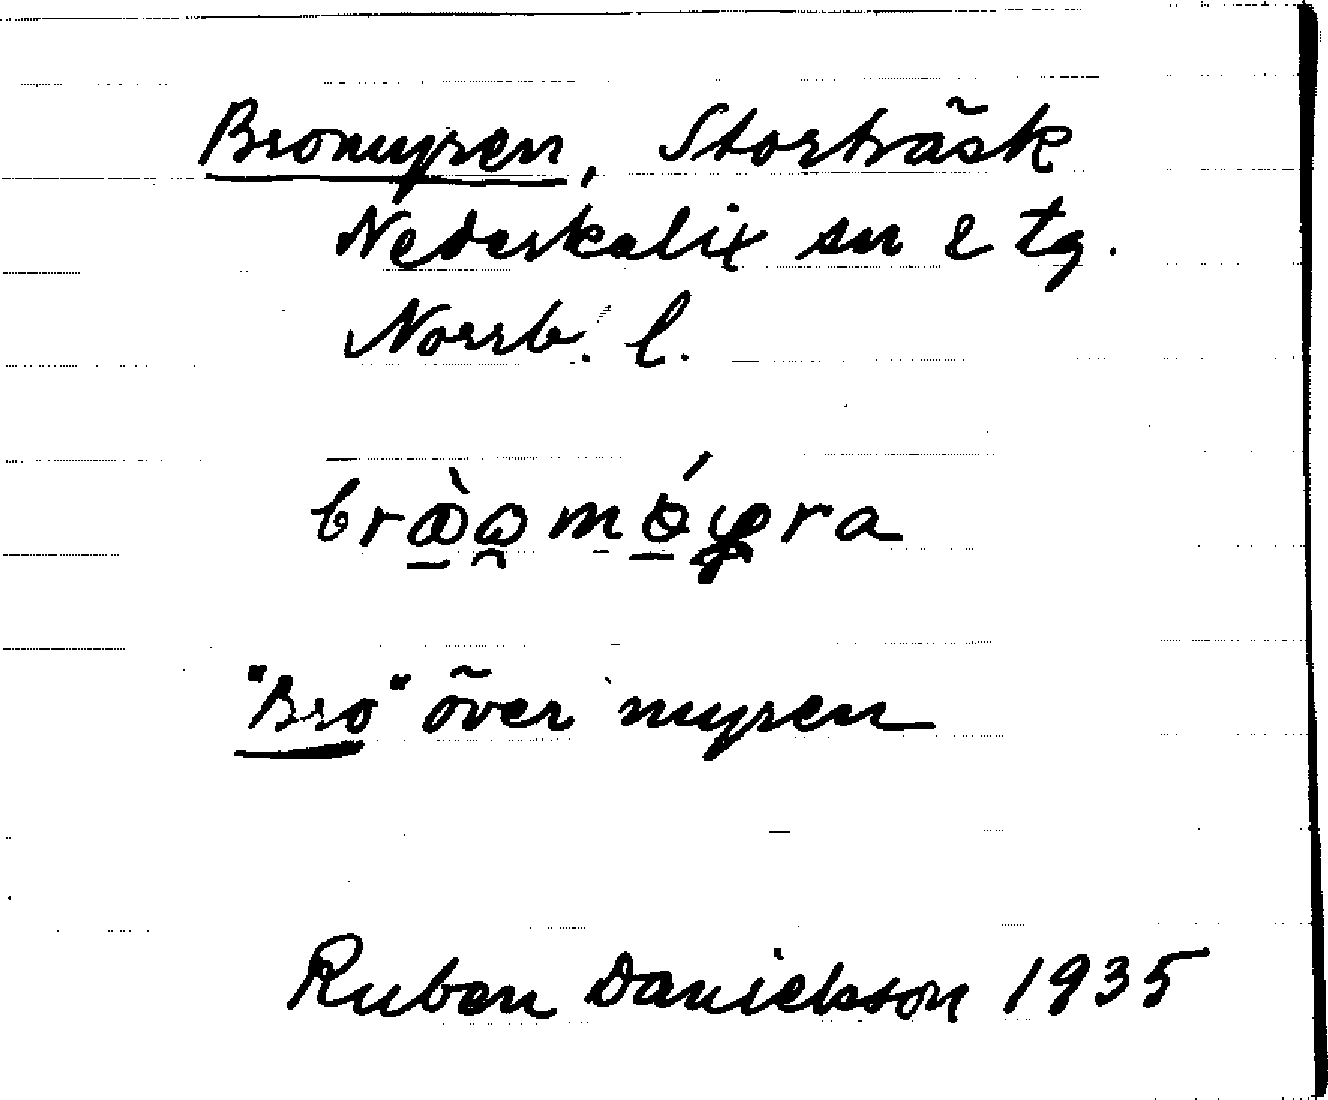 Bromyren, Storträsk
Nederkalix sn o tg.
Norrb. l.
"Bro" över myren
Ruben Danielsson 1935